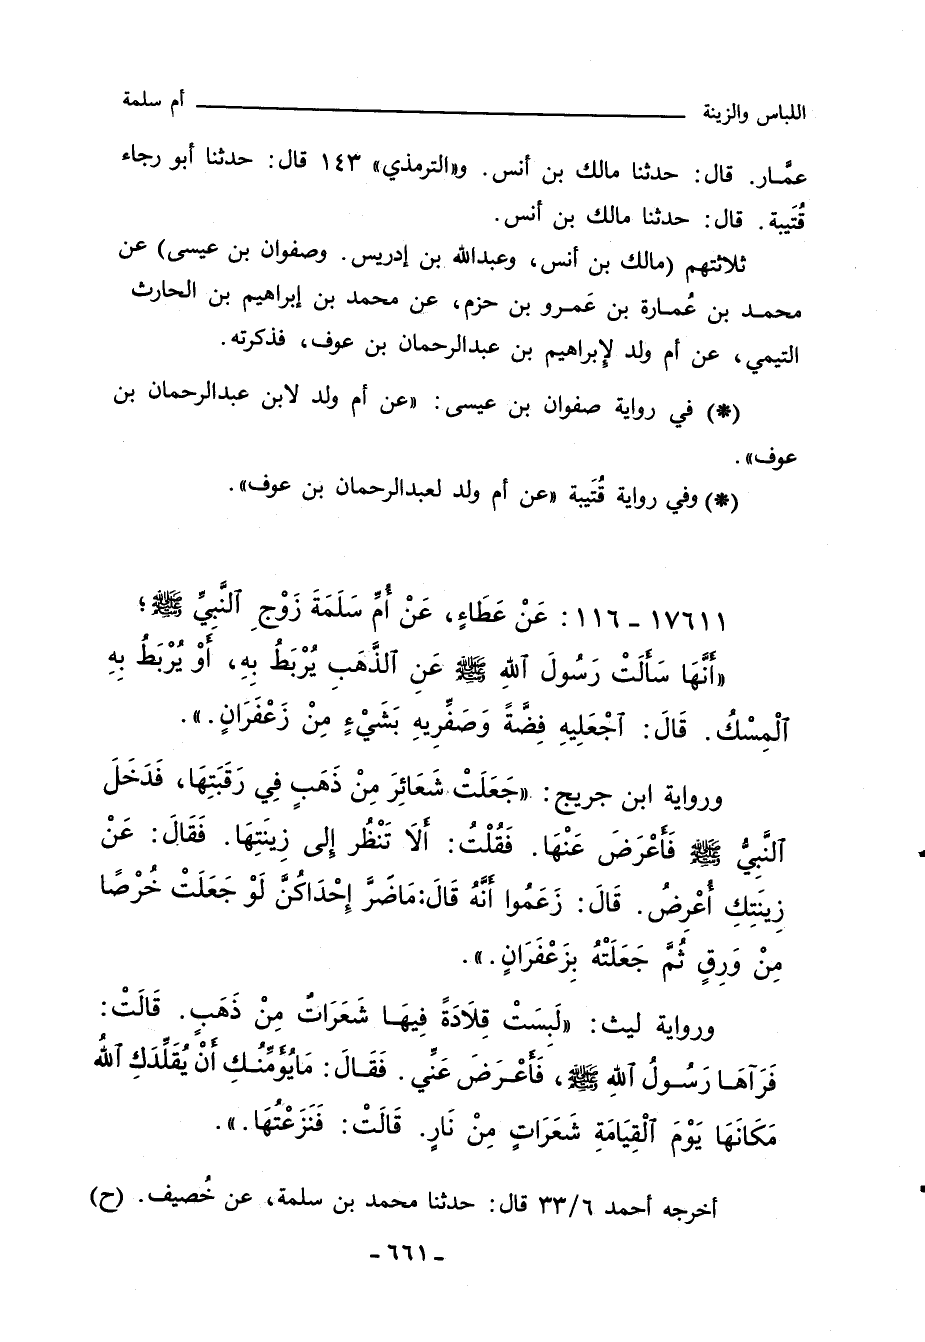 اللباس والزينة ـــــــ أم سلمة
عمَّـار. قال: حدثنا مالك بن أنس. و«الترمذي» ١٤٣ قال: حدثنا أبو رجاء
قُتَيبة. قال: حدثنا مالك بن أنس.
ثلاثتهم (مالك بن أنس، وعبدالله بن إدريس. وصفوان بن عيسى) عن
محمـد بن عُمـارة بن عَمـرو بن حزم، عن محمد بن إبراهيم بن الحارث
التيمي، عن أم ولد لإبراهيم بن عبدالرحمان بن عوف، فذكرته.
(*) في رواية صفوان بن عيسى: «عن أم ولد لابن عبدالرحمان بن
عوف».
(*) وفي رواية قُتَيبة «عن أم ولد لعبدالرحمان بن عوف».
١٧٦١١ ـ ١١٦: عَنْ عَطَاءٍ، عَنْ أُمِّ سَلَمَةَ زَوْجِ ٱلنَّبِيِّ ﷺ؛
«أَنَّهَا سَأَلَتْ رَسُولَ ٱللهِ ﷺ عَنِ ٱلذَّهَبِ يُرْبَطُ بِهِ، أَوْ يُرْبَطُ بِهِ
ٱلْمِسْكُ. قَالَ: ٱجْعَلِيهِ فِضَّةً وَصَفِّرِيهِ بَشَيْءٍ مِنْ زَعْفَرَانٍ.».
ورواية ابن جريج: «جَعَلَتْ شَعَائِرَ مِنْ ذَهَبٍ فِي رَقَبَتِهَا، فَدَخَلَ
ٱلنَّبِيُّ ﷺ فَأَعْرَضَ عَنْهَا. فَقُلْتُ: أَلَا تَنْظُر إِلى زِينَتِهَا. فَقَالَ: عَنْ
زِينَتِكِ أُعْرِضُ. قَالَ: زَعَمُوا أَنَّهُ قَالَ:مَاضَرَّ إِحْدَاكُنَّ لَوْ جَعَلَتْ خُرْصًا
مِنْ وَرِقٍ ثُمَّ جَعَلَتْهُ بِزَعْفَرَانٍ.».
ورواية ليث: «لَبِسَتْ قِلَادَةً فِيهَـا شَعَرَاتٌ مِنْ ذَهَبٍ. قَالَتْ:
فَرَآهَـا رَسُـولُ ٱللهِ ﷺ، فَأَعْـرَضَ عَنِّي. فَقَـالَ: مَايُؤَمِّنُـكِ أَنْ يُقَلِّدَكِ ٱللهُ
مَكَانَهَا يَوْمَ ٱلْقِيَامَةِ شَعَرَاتٍ مِنْ نَارٍ. قَالَتْ: فَنَزَعْتُهَا.».
أخرجه أحمد ٣٣/٦ قال: حدثنا محمد بن سلمة، عن خُصيف. (ح)
ـ ٦٦١ ـ